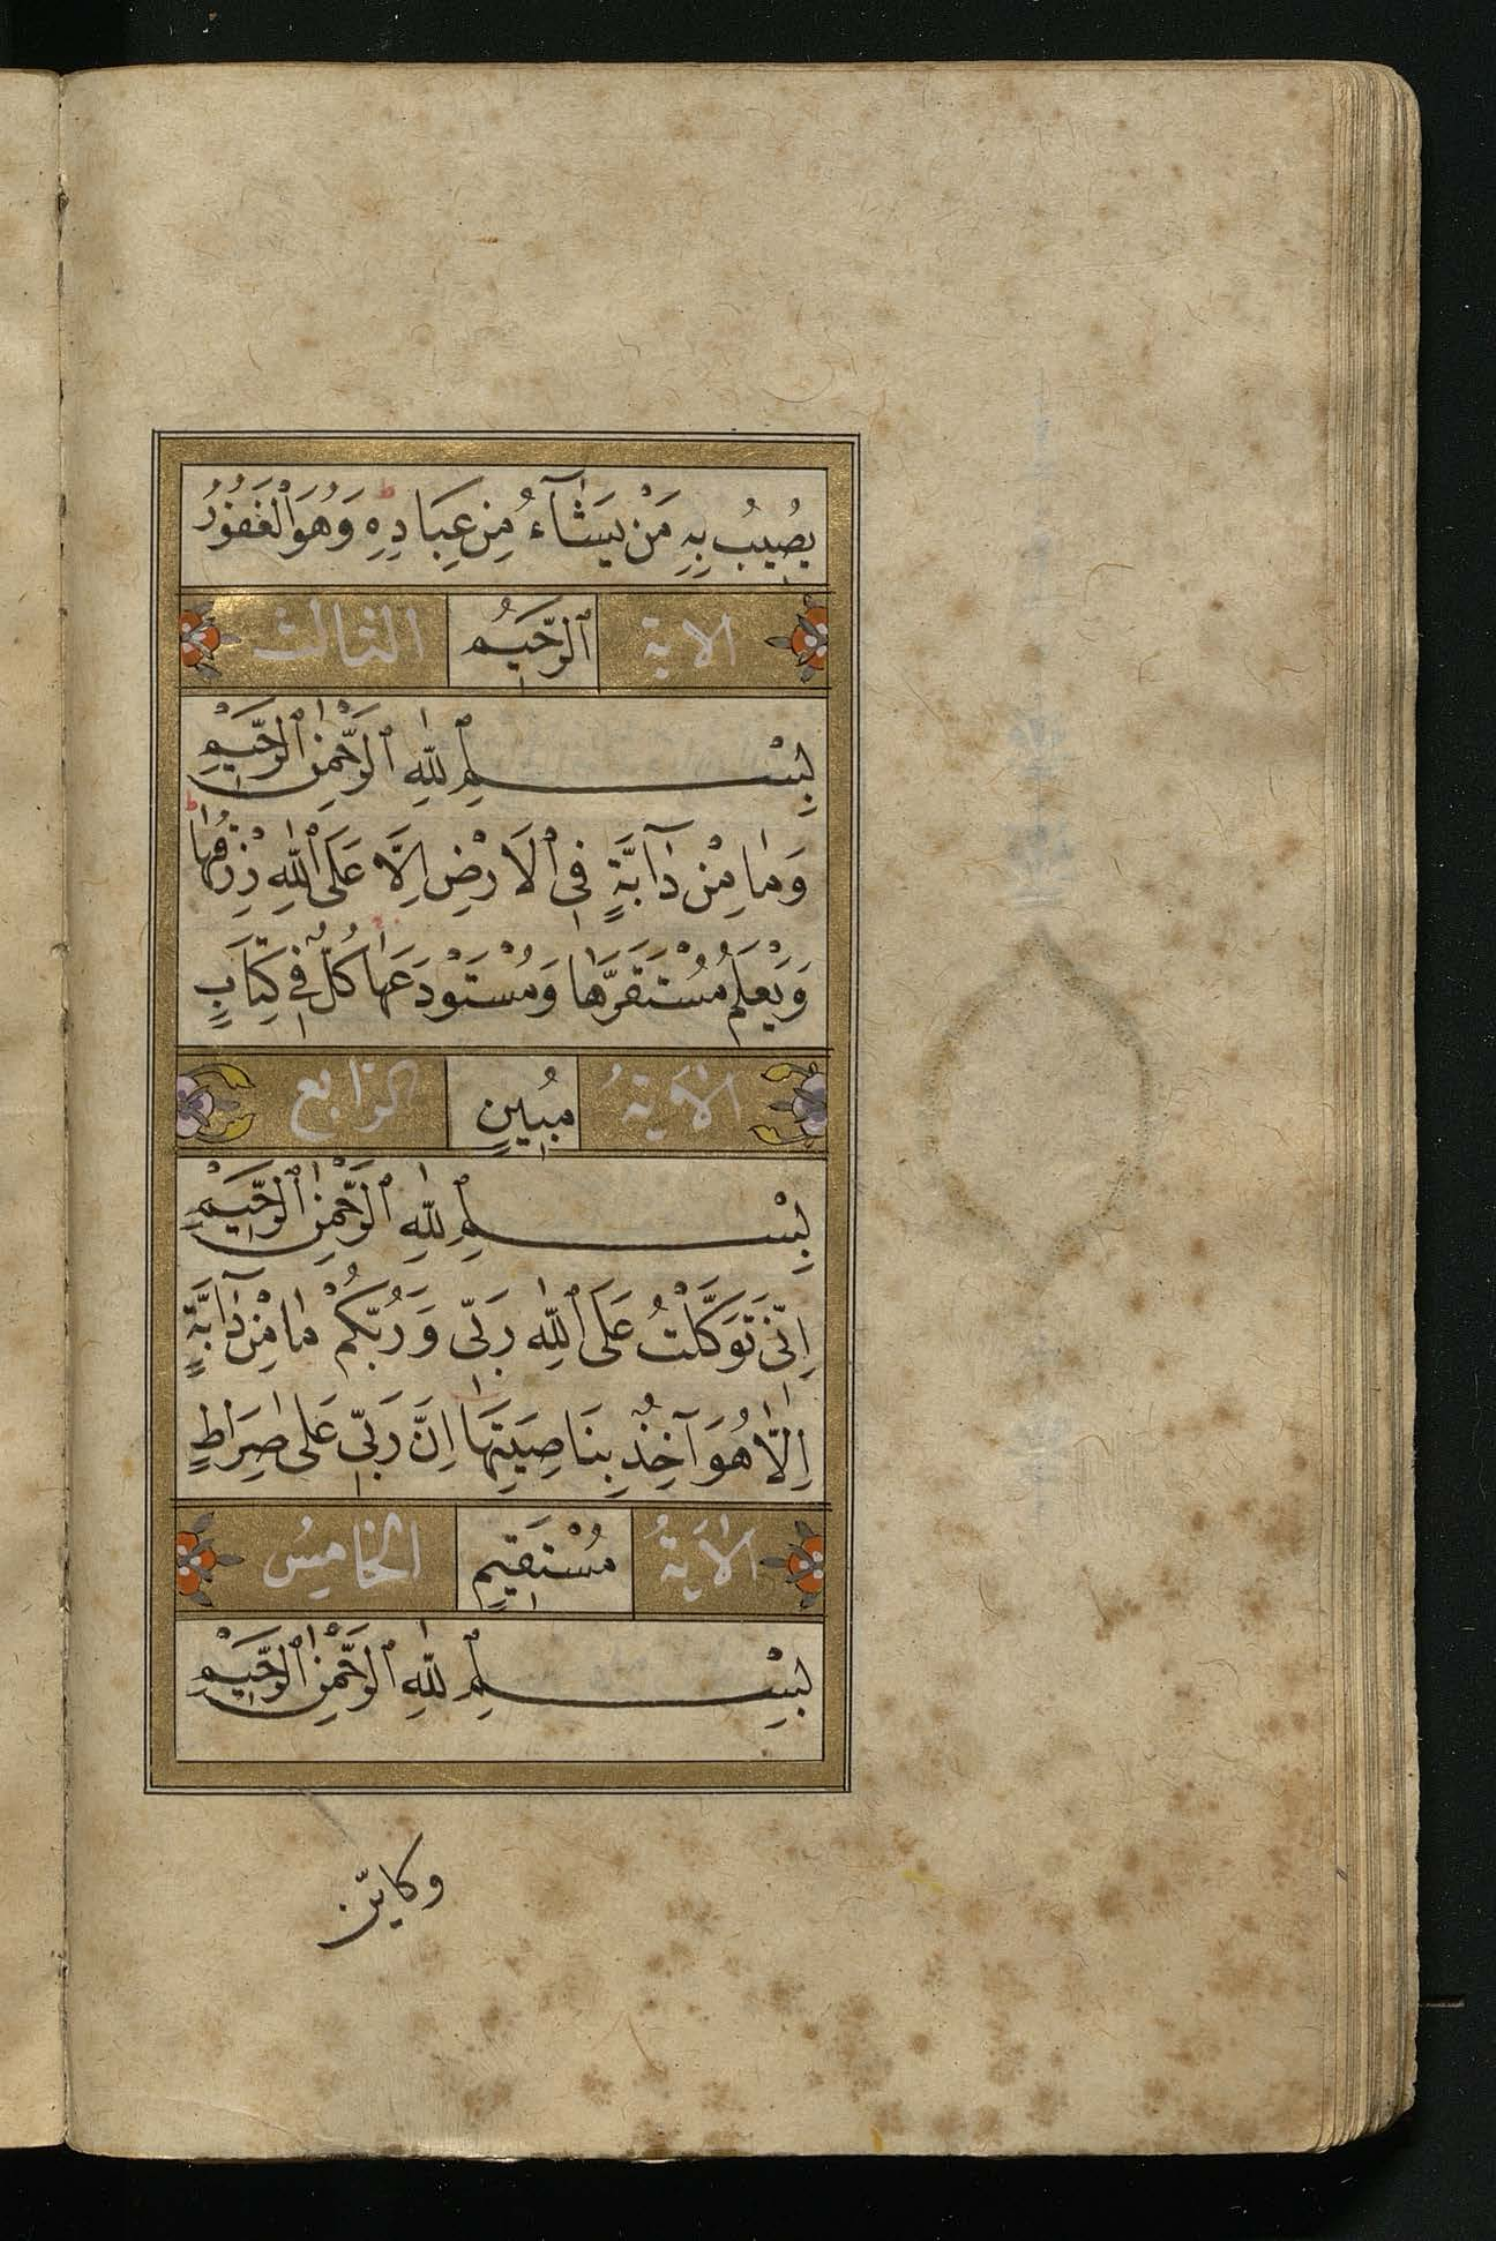 يُصِيبُ بِهِ مَنْ يَشَآءُ مِنْ عِبَادِهِ ط وَهُوَ الْغَفُورُ
الاية الرَّحِيمُ الثالث
بِسْمِ اللّٰهِ الرَّحْمٰنِ الرَّحِيمِ
وَمَا مِنْ دَآبَّةٍ فِى الْاَرْضِ اِلَّا عَلَى اللّٰهِ رِزْقُهَا ط
وَيَعْلَمُ مُسْتَقَرَّهَا وَمُسْتَوْدَعَهَا كُلٌّ فِى كِتَابٍ
الْاٰيَةُ مُبِينٍ الرابع
بِسْمِ اللّٰهِ الرَّحْمٰنِ الرَّحِيمِ
اِنِّى تَوَكَّلْتُ عَلَى اللّٰهِ رَبِّى وَرَبِّكُمْ مَا مِنْ دَآبَّةٍ
اِلَّا هُوَ آخِذٌ بِنَاصِيَتِهَا اِنَّ رَبِّى عَلٰى صِرَاطٍ
الْاٰيَةُ مُسْتَقِيمٍ الخامِسُ
بِسْمِ اللّٰهِ الرَّحْمٰنِ الرَّحِيمِ
وكاين